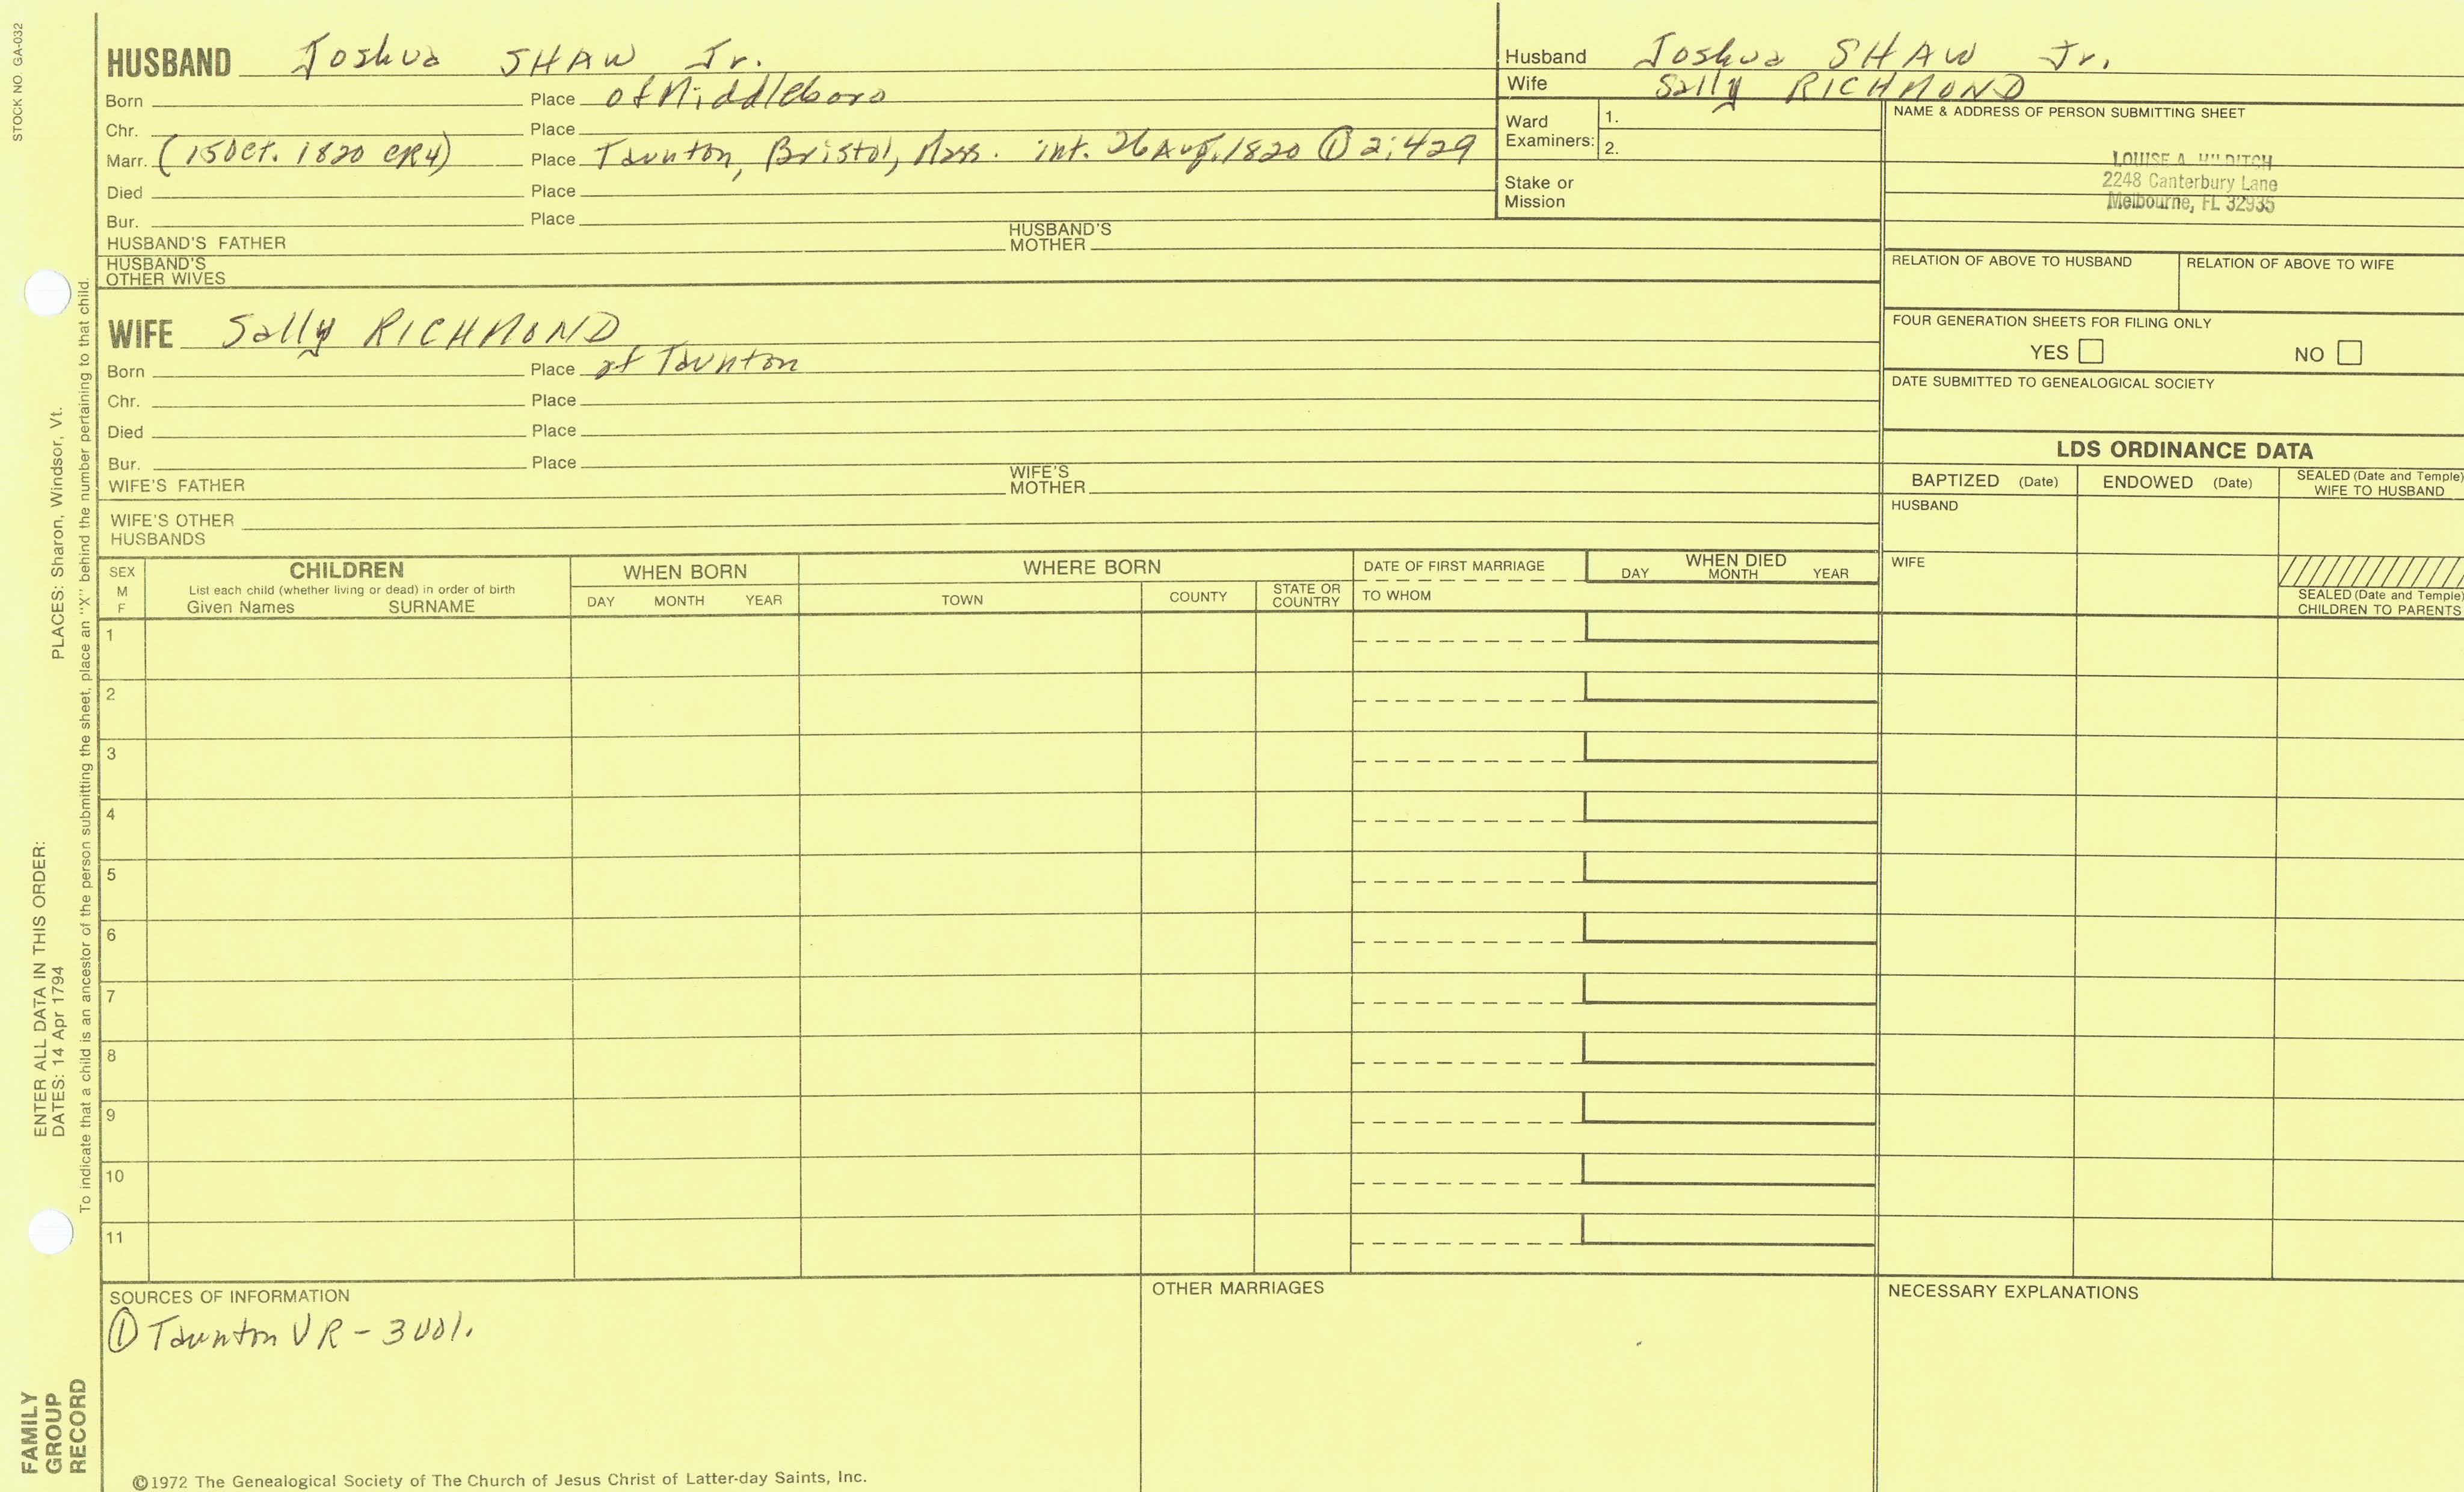 STOCK NO. GA-032
HUSBAND Joshua SHAW Jr.
Born Place of Middleboro
Chr. Place
Marr. (15 Oct. 1820 CR4) Place Taunton, Bristol, Mass. int. 26 Aug. 1820 ① 2:429
Died Place
Bur. Place
HUSBAND'S FATHER HUSBAND'S MOTHER
HUSBAND'S OTHER WIVES
WIFE Sally RICHMOND
Born Place of Taunton
Chr. Place
Died Place
Bur. Place
WIFE'S FATHER WIFE'S MOTHER
WIFE'S OTHER HUSBANDS
Husband Joshua SHAW Jr.
Wife Sally RICHMOND
Ward Examiners: 1.
2.
Stake or Mission
NAME & ADDRESS OF PERSON SUBMITTING SHEET
LOUISE A.
2248 Canterbury Lane
Melbourne, FL 32935
RELATION OF ABOVE TO HUSBAND RELATION OF ABOVE TO WIFE
FOUR GENERATION SHEETS FOR FILING ONLY
YES NO
DATE SUBMITTED TO GENEALOGICAL SOCIETY
LDS ORDINANCE DATA
BAPTIZED (Date) ENDOWED (Date) SEALED (Date and Temple) WIFE TO HUSBAND
HUSBAND
WIFE
SEALED (Date and Temple) CHILDREN TO PARENTS
SEX M F
CHILDREN
List each child (whether living or dead) in order of birth
Given Names SURNAME
WHEN BORN
DAY MONTH YEAR
WHERE BORN
TOWN COUNTY STATE OR COUNTRY
DATE OF FIRST MARRIAGE
TO WHOM
WHEN DIED
DAY MONTH YEAR
1
2
3
4
5
6
7
8
9
10
11
SOURCES OF INFORMATION
① Taunton VR - 3 vol.
OTHER MARRIAGES
NECESSARY EXPLANATIONS
©1972 The Genealogical Society of The Church of Jesus Christ of Latter-day Saints, Inc.
FAMILY GROUP RECORD
ENTER ALL DATA IN THIS ORDER:
DATES: 14 Apr 1794 PLACES: Sharon, Windsor, Vt.
To indicate that a child is an ancestor of the person submitting the sheet, place an "X" behind the number pertaining to that child.